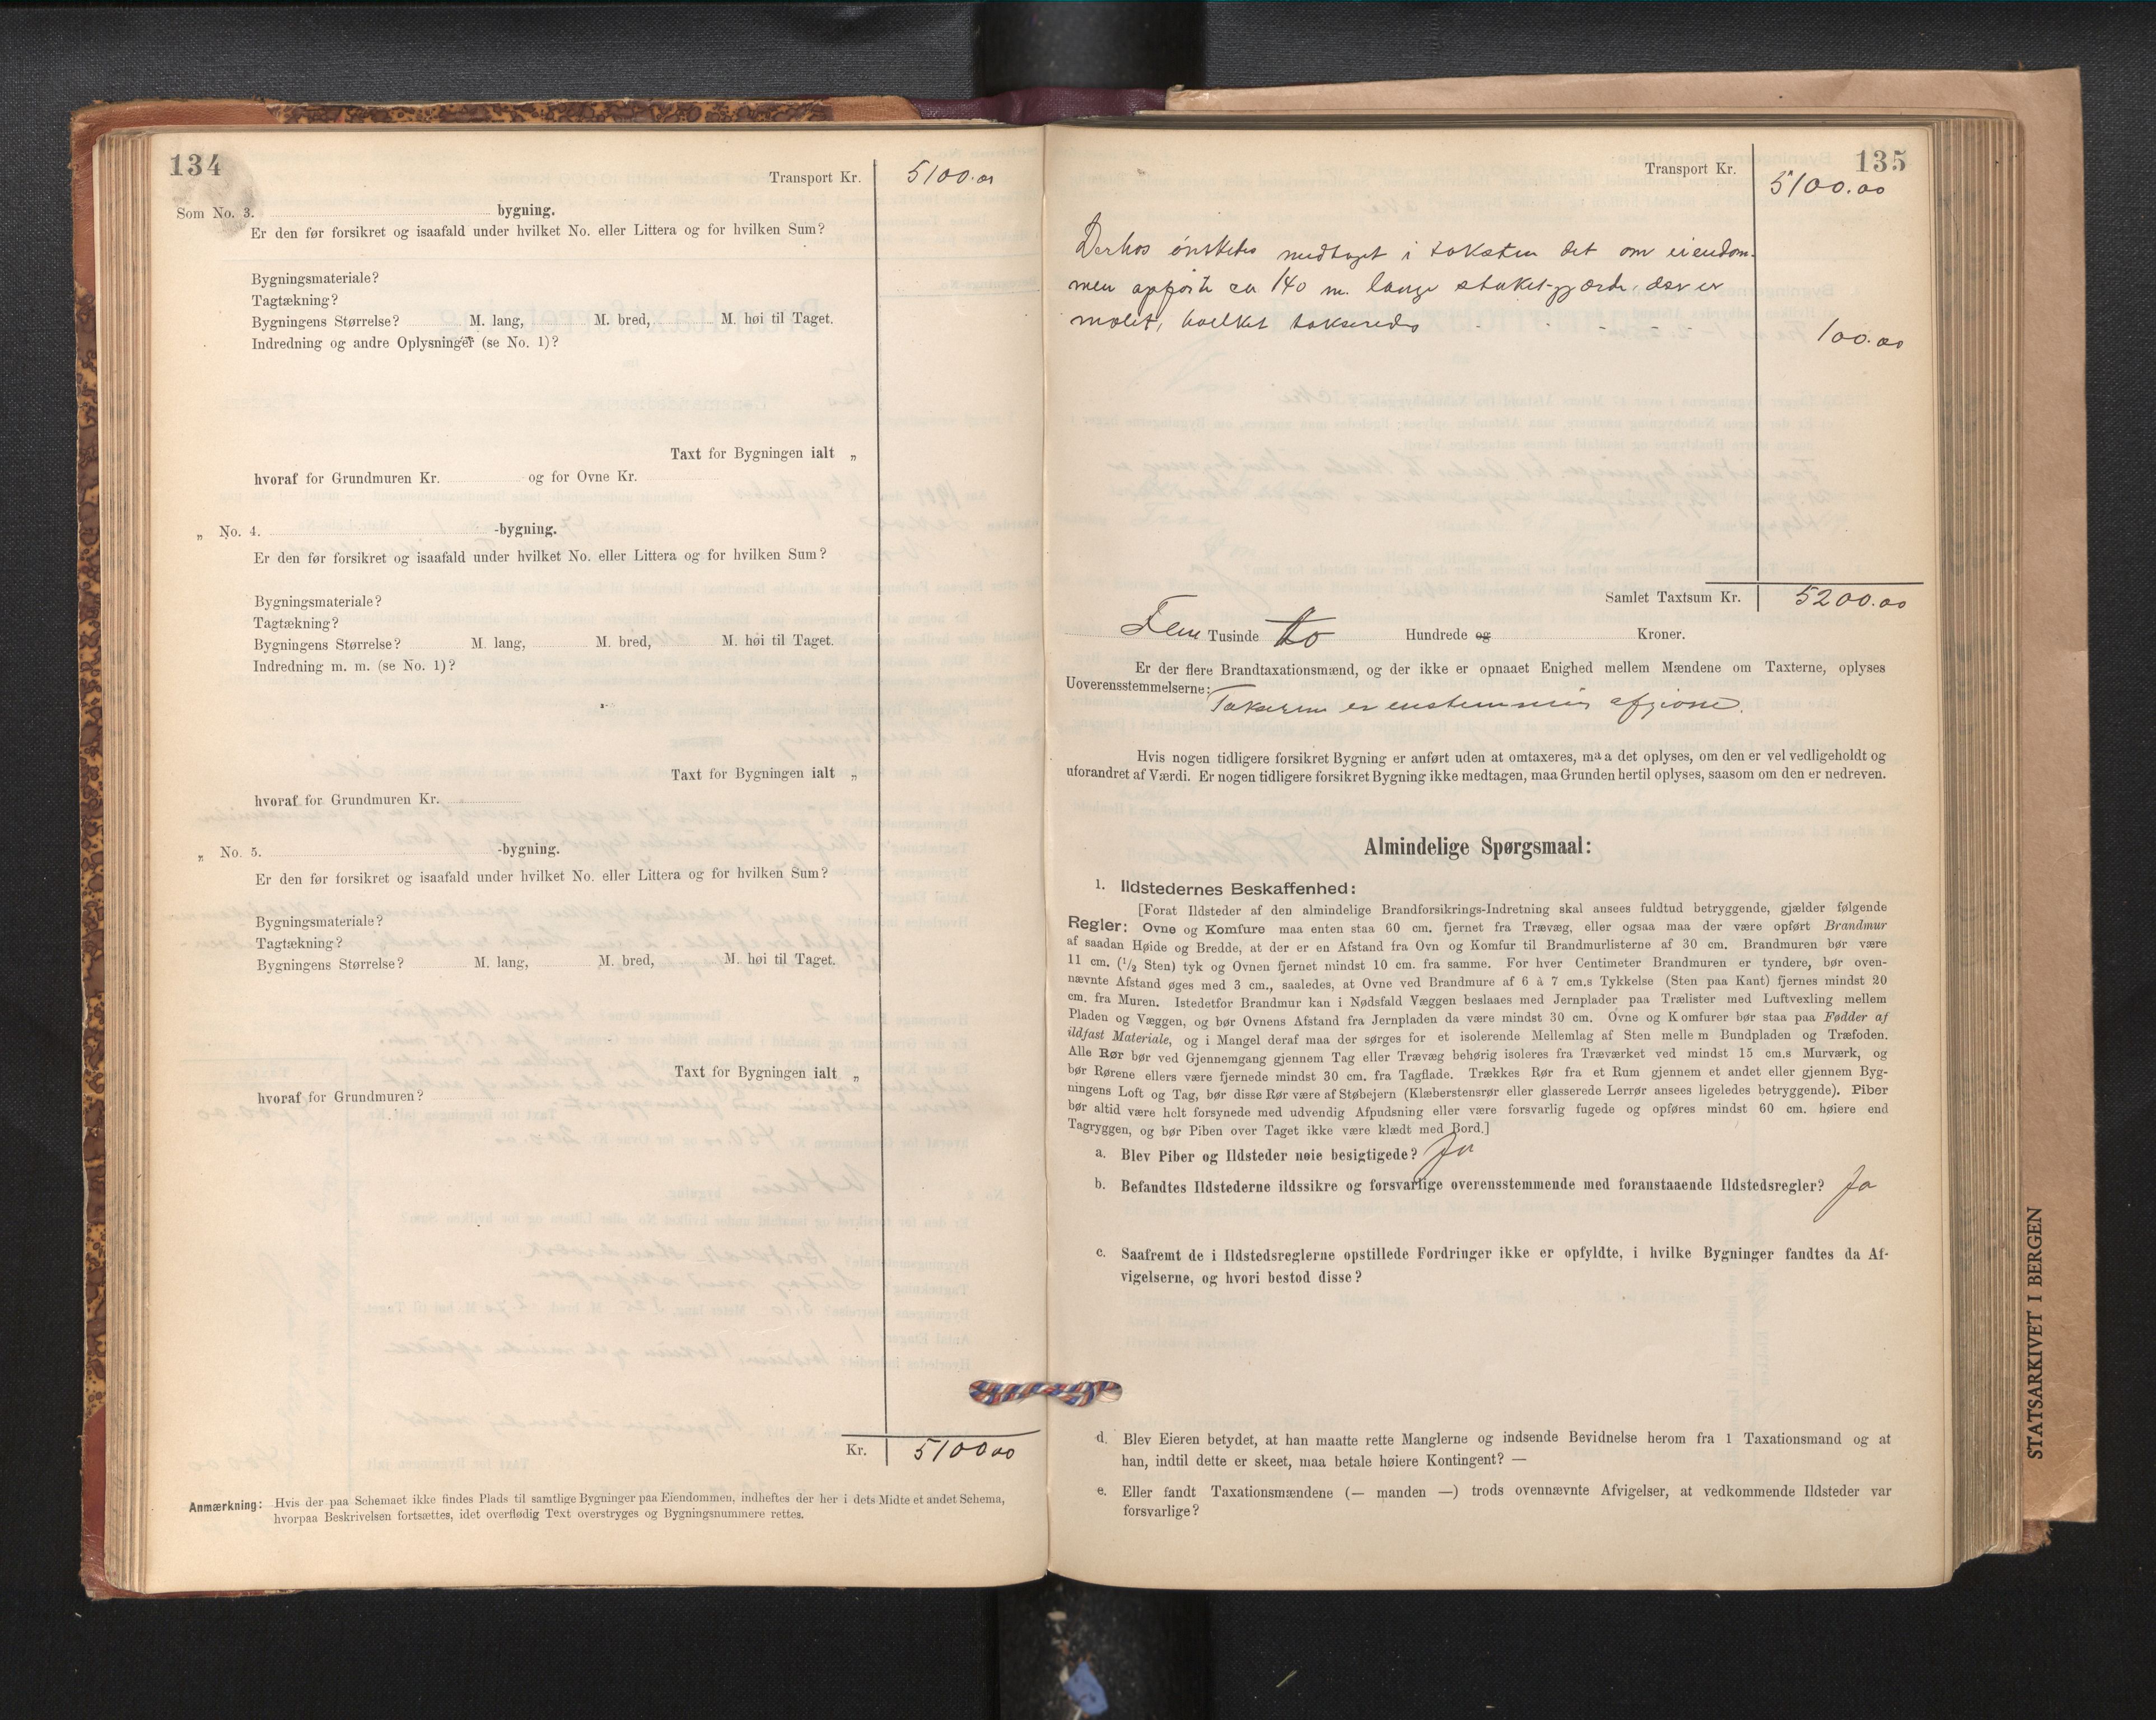 134
Transport Kr. 5100.00
Som No. 3. bygning.
Er den før forsikret og isaafald under hvilket No. eller Littera og for hvilken Sum?
Bygningsmateriale?
Tagtækning?
Bygningens Størrelse? M. lang, M. bred, M. høi til Taget.
Indredning og andre Oplysninger (se No. 1)?
Taxt for Bygningen ialt „
hvoraf for Grundmuren Kr. og for Ovne Kr.
„ No. 4. -bygning.
Er den før forsikret og isaafald under hvilket No. eller Littera og for hvilken Sum?
Bygningsmateriale?
Tagtækning?
Bygningens Størrelse? M. lang, M. bred, M. høi til Taget.
Indredning m. m. (se No. 1)?
Taxt for Bygningen ialt „
hvoraf for Grundmuren Kr.
„ No. 5. -bygning.
Er den før forsikret og isaafald under hvilket No. eller Littera og for hvilken Sum?
Bygningsmateriale?
Tagtækning?
Bygningens Størrelse? M. lang, M. bred, M. høi til Taget.
Taxt for Bygningen ialt „
hvoraf for Grundmuren?
Kr. 5100 00
Anmærkning: Hvis der paa Schemaet ikke findes Plads til samtlige Bygninger paa Eiendommen, indheftes der her i dets Midte et andet Schema,
hvorpaa Beskrivelsen fortsættes, idet overflødig Text overstryges og Bygningsnummere rettes.
135
Transport Kr. 5100.00
Derhos ønskedes medtaget i taksten det om eiendom-
men opførte ca 140 m. lange staket-gjærde, der er
malet, hvilket takseredes 100.00
Samlet Taxtsum Kr. 5200.00
Fem Tusinde to Hundrede og Kroner.
Er der flere Brandtaxationsmænd, og der ikke er opnaaet Enighed mellem Mændene om Taxterne, oplyses
Uoverensstemmelserne: Takserne er enstemmig afgivne.
Hvis nogen tidligere forsikret Bygning er anført uden at omtaxeres, maa det oplyses, om den er vel vedligeholdt og
uforandret af Værdi. Er nogen tidligere forsikret Bygning ikke medtagen, maa Grunden hertil oplyses, saasom om den er nedreven.
Almindelige Spørgsmaal:
1. Ildstedernes Beskaffenhed:
[Forat Ildsteder af den almindelige Brandforsikrings-Indretning skal ansees fuldtud betryggende, gjælder følgende
Regler: Ovne og Komfure maa enten staa 60 cm. fjernet fra Trævæg, eller ogsaa maa der være opført Brandmur
af saadan Høide og Bredde, at der er en Afstand fra Ovn og Komfur til Brandmurlisterne af 30 cm. Brandmuren bør være
11 cm. (1/2 Sten) tyk og Ovnen fjernet mindst 10 cm. fra samme. For hver Centimeter Brandmuren er tyndere, bør oven-
nævnte Afstand øges med 3 cm., saaledes, at Ovne ved Brandmure af 6 à 7 cm.s Tykkelse (Sten paa Kant) fjernes mindst 20
cm. fra Muren. Istedetfor Brandmur kan i Nødsfald Væggen beslaaes med Jernplader paa Trælister med Luftvexling mellem
Pladen og Væggen, og bør Ovnens Afstand fra Jernpladen da være mindst 30 cm. Ovne og Komfurer bør staa paa Fødder af
ildfast Materiale, og i Mangel deraf maa der sørges for et isolerende Mellemlag af Sten mellem Bundpladen og Træfoden.
Alle Rør bør ved Gjennemgang gjennem Tag eller Trævæg behørig isoleres fra Træværket ved mindst 15 cm.s Murværk, og
bør Rørene ellers være fjernede mindst 30 cm. fra Tagflade. Trækkes Rør fra et Rum gjennem et andet eller gjennem Byg-
ningens Loft og Tag, bør disse Rør være af Støbejern (Klæberstensrør eller glasserede Lerrør ansees ligeledes betryggende). Piber
bør altid være helt forsynede med udvendig Afpudsning eller være forsvarlig fugede og opføres mindst 60 cm. høiere end
Tagryggen, og bør Piben over Taget ikke være klædt med Bord.]
a. Blev Piber og Ildsteder nøie besigtigede? Ja
b. Befandtes Ildstederne ildssikre og forsvarlige overensstemmende med foranstaaende Ildstedsregler? Ja
c. Saafremt de i Ildstedsreglerne opstillede Fordringer ikke er opfyldte, i hvilke Bygninger fandtes da Af-
vigelserne, og hvori bestod disse?
d. Blev Eieren betydet, at han maatte rette Manglerne og indsende Bevidnelse herom fra 1 Taxationsmand og at
han, indtil dette er skeet, maa betale høiere Kontingent? —
e. Eller fandt Taxationsmændene (— manden —) trods ovennævnte Afvigelser, at vedkommende Ildsteder var
forsvarlige?
STATSARKIVET I BERGEN